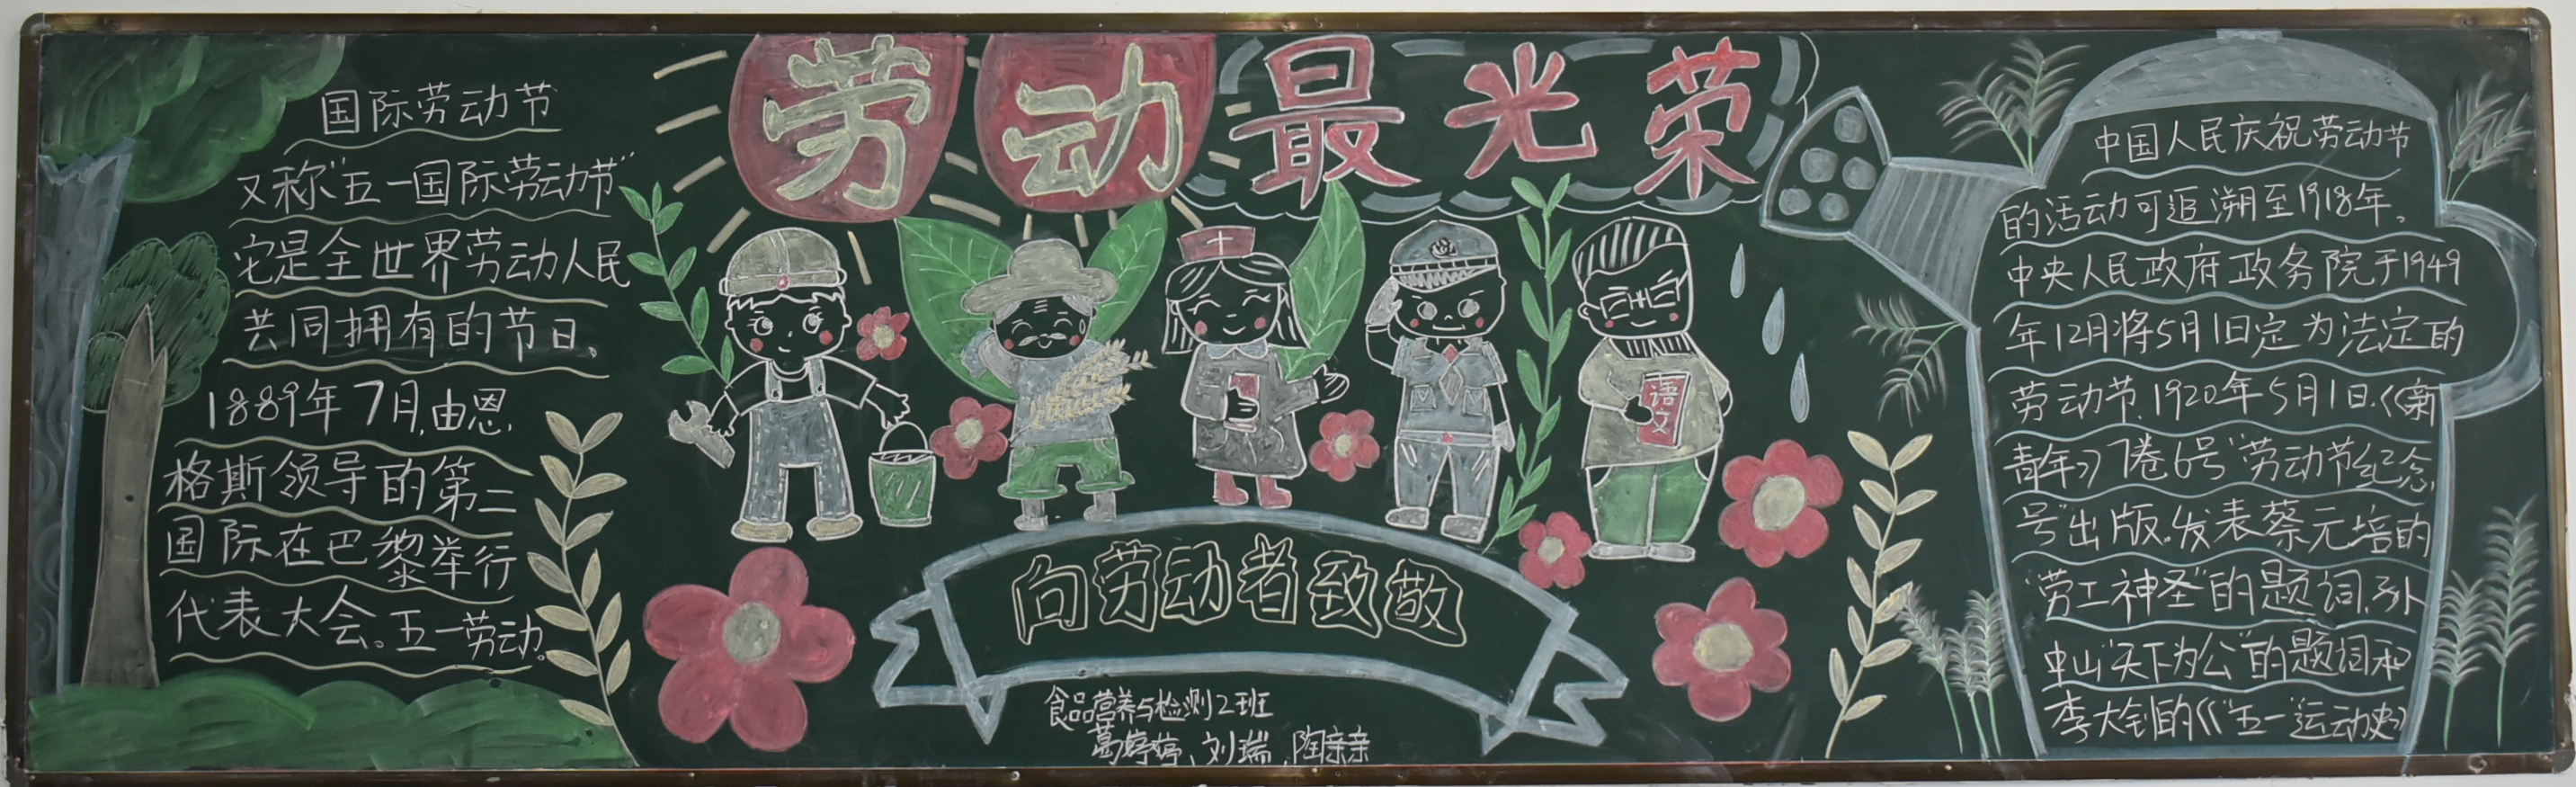 劳动最光荣
国际劳动节
又称“五一国际劳动节”
它是全世界劳动人民
共同拥有的节日。
1889年7月,由恩
格斯领导的第二
国际在巴黎举行
代表大会。五一劳动。
语
文
向劳动者致敬
食品营养与检测2班
葛婷婷、刘瑞、陶亲亲
中国人民庆祝劳动节
的活动可追溯至1918年。
中央人民政府政务院于1949
年12月将5月1日定为法定的
劳动节,1920年5月1日,《新
青年》7卷6号“劳动节纪念
号”出版,发表蔡元培的
“劳工神圣”的题词,孙
中山“天下为公”的题词和
李大钊的《“五一”运动史》